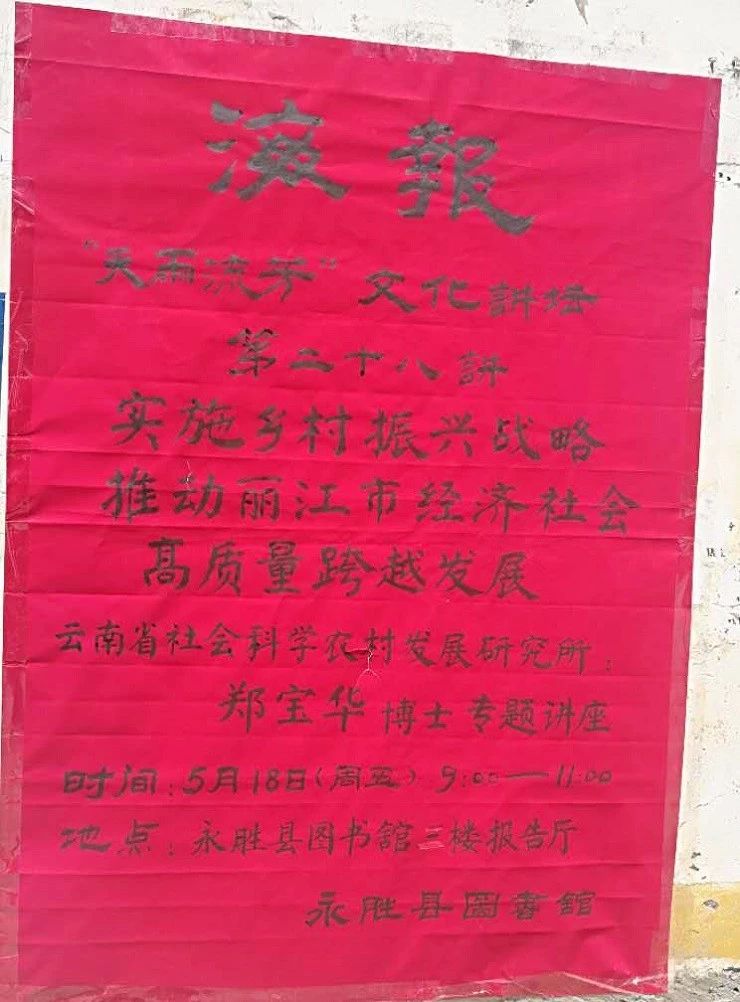 海報
“天雨流芳”文化講坛
第二十八講
实施乡村振兴战略
推动丽江市经济社会
高质量跨越发展
云南省社会科学农村发展研究所：
郑宝华 博士 专题讲座
时间：5月18日(周五) 9:00—11:00
地点：永胜县图书館三楼报告厅
永胜县圖書館